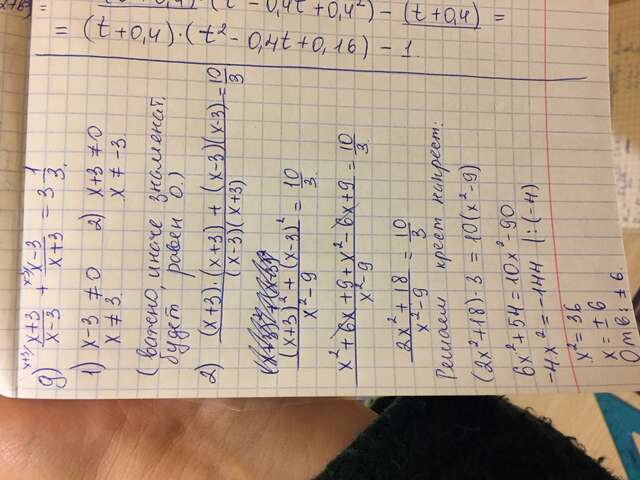 д) ^{x+3/} \frac{x+3}{x-3} + ^{x-3/} \frac{x-3}{x+3} = 3 \frac{1}{3}.
1) x-3 ≠ 0   2) x+3 ≠ 0
x ≠ 3.   x ≠ -3.
(важно, иначе знаменат.
будет равен 0.)
2) \frac{(x+3)·(x+3) + (x-3)(x-3)}{(x-3)(x+3)} = \frac{10}{3}
\frac{(x+3)^2 + (x-3)^2}{x^2-9} = \frac{10}{3.}
\frac{x^2+6x+9+x^2-6x+9}{x^2-9} = \frac{10}{3.}
\frac{2x^2+18}{x^2-9} = \frac{10}{3}
Решаем крест накрест:
(2x^2+18)·3 = 10(x^2-9)
6x^2+54 = 10x^2-90
-4x^2 = -144 |:(-4)
x^2 = 36
x = ± 6
Отв: ± 6.
= (t+0,4)·(t^2-0,4t+0,16) - 1